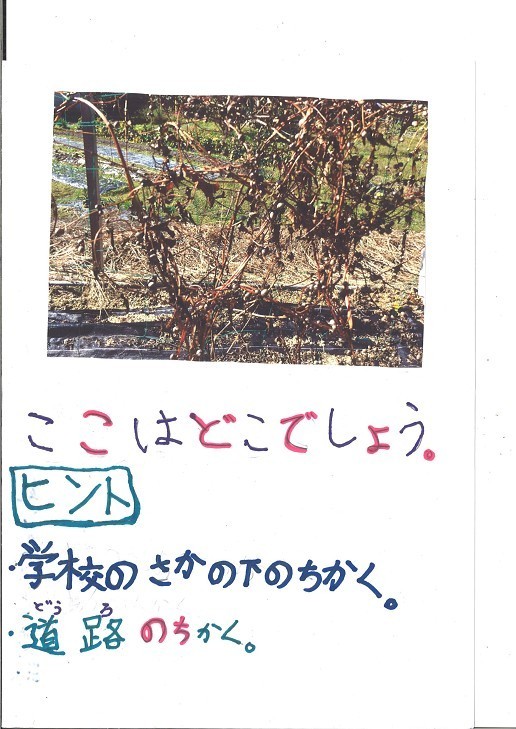 ここはどこでしょう。
ヒント
・学校のさかの下のちかく。
どうろ
・道路のちかく。